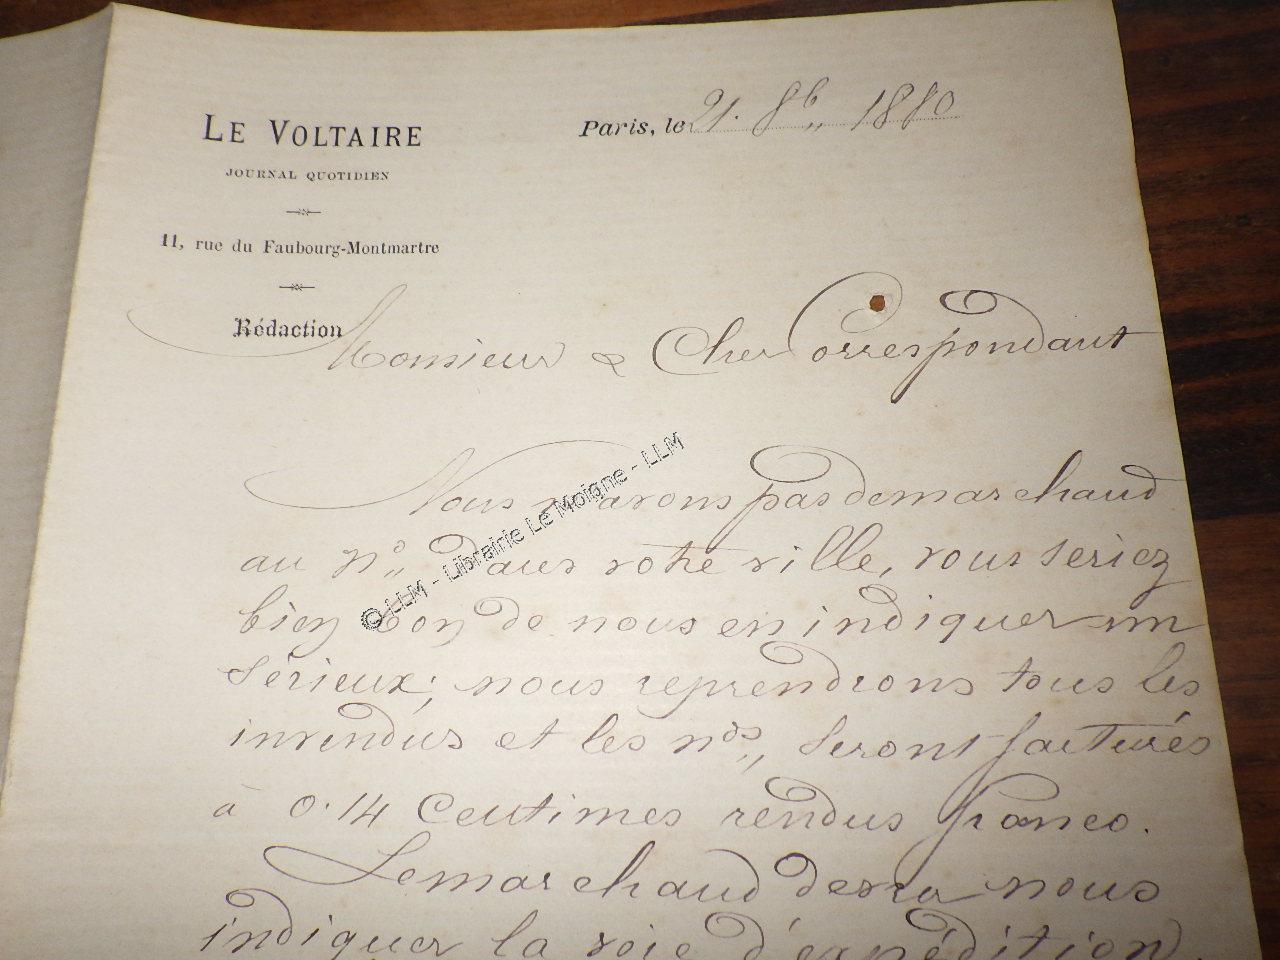 LE VOLTAIRE
JOURNAL QUOTIDIEN
11, rue du Faubourg-Montmartre
Rédaction
Paris, le 21. 8b,, 1880
Monsieur & Cher Correspondant
Nous n'avons pas de marchand
au No,, dans votre ville, vous seriez
bien bon de nous en indiquer un
sérieux; nous reprendrons tous les
invendus et les nos,, seront facturés
à 0.14 Centimes rendus franco.
Le marchand devra nous
indiquer la voie d'expédition.
© LLM - Librairie Le Moigne - LLM